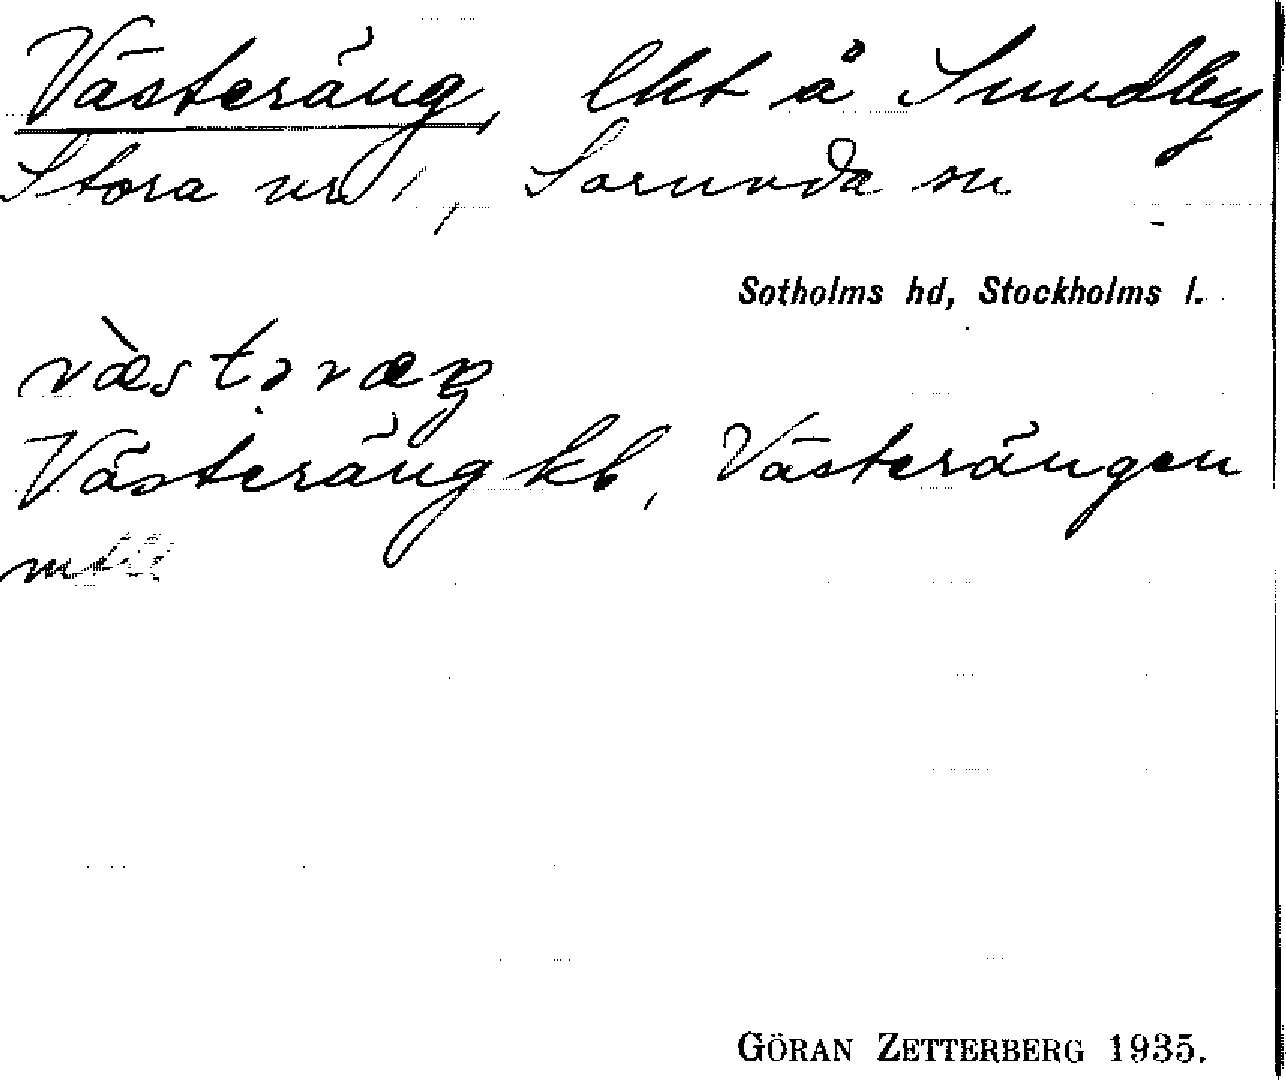 Västeräng, lht å Sundby
Stora nr 1, Sorunda sn
Sotholms hd, Stockholms l.
væ̀stəræŋ
Västeräng kb, Västerängen
GÖRAN ZETTERBERG 1935.